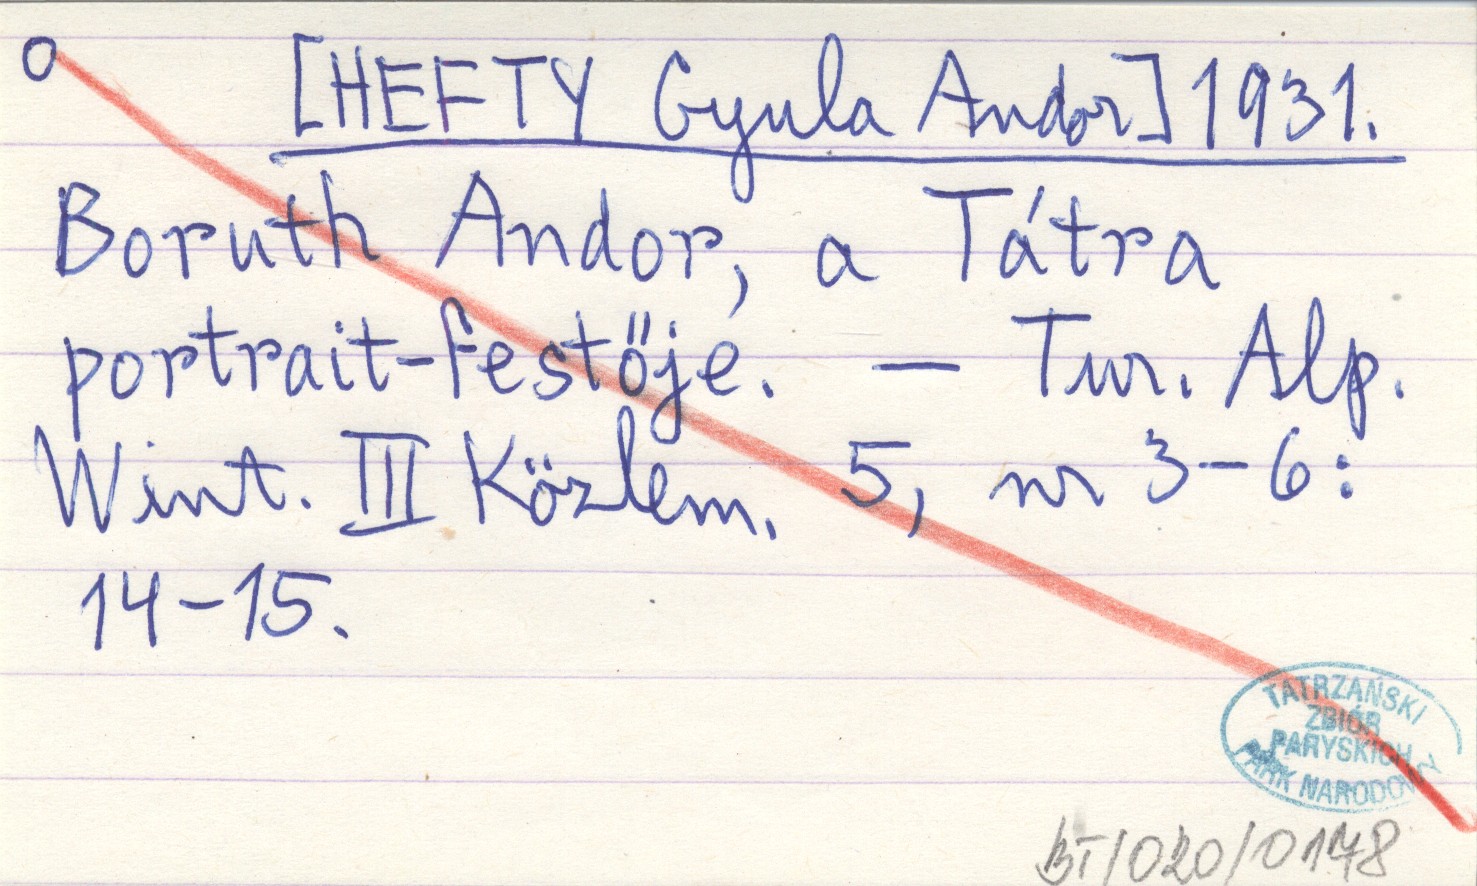 [HEFTY Gyula Andor] 1931.
Boruth Andor, a Tátra
portrait-festője. — Tur. Alp.
Wint. III Közlem. 5, nr 3-6:
14-15.
TATRZAŃSKI
ZBIÓR
PARYSKICH
PARK NARODOWY
BT/020/0178